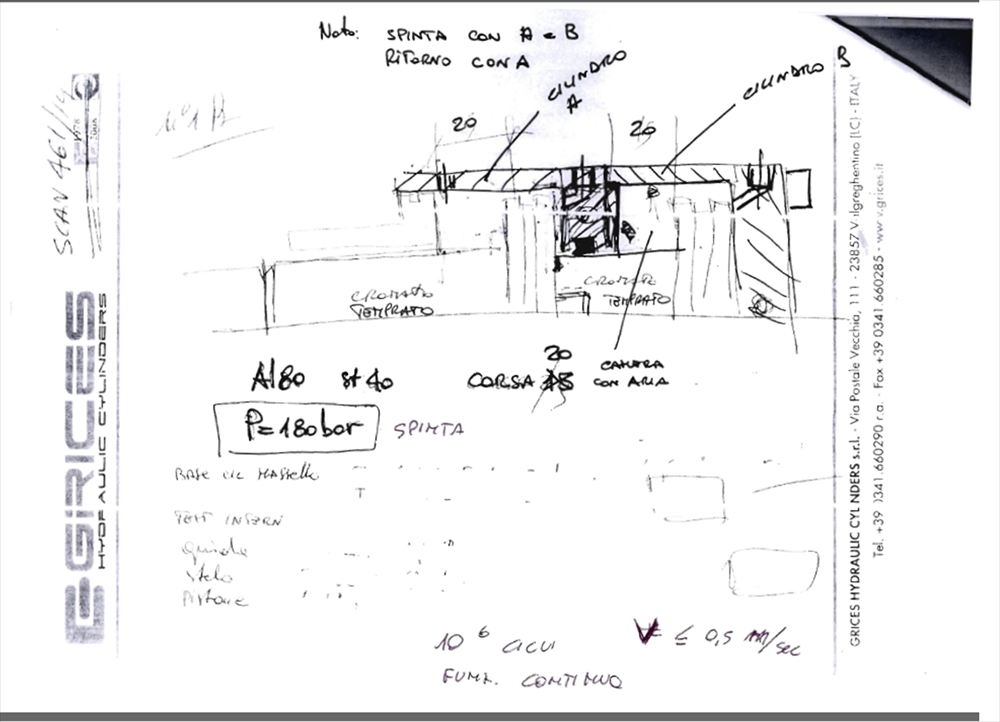 Nota: SPINTA CON A e B
RITORNO CON A
CILINDRO
A
CILINDRO B
SCAN 461/14
N°1 B
20
20
CROMATO
TEMPRATO
CROMATO
TEMPRATO
20
CAMERA
CON ARIA
Al80 st 40 CORSA
P=180bar SPINTA
BASE
TEST INTERNI
guide
stelo
Pistone
10⁶ CICLI V ≤ 0,5 m/sec
FUNZ. CONTINUO
GRICES
HYDRAULIC CYLINDERS
GRICES HYDRAULIC CYLINDERS s.r.l. - Via Postale Vecchia, 111 - 23857 Valgreghentino (LC) - ITALY
Tel. +39 0341.660290 r.a. - Fax +39 0341.660285 - www.grices.it